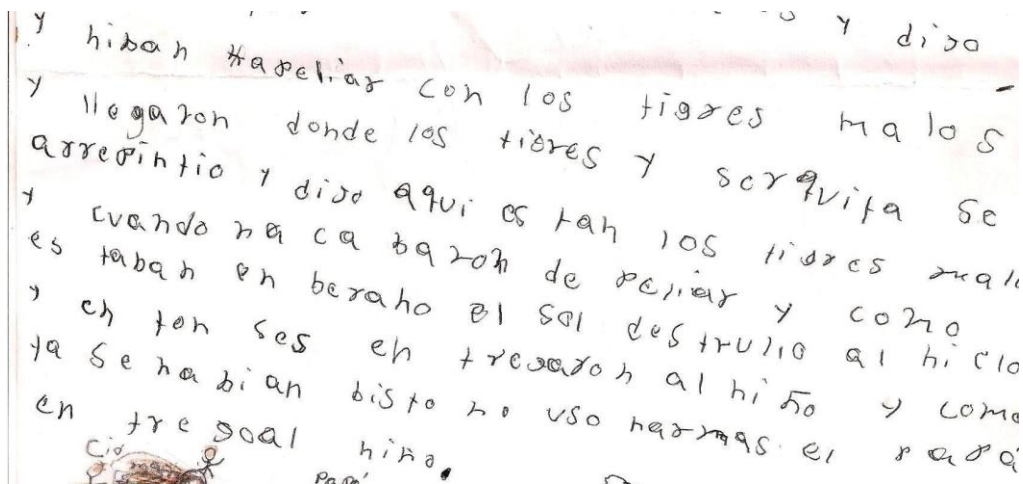 y diso
y hiban hapeliar con los tigres malos
y llegaron donde los tigres y serquita se
arrepintio y diso aqui es tan los tigres malo
y cuando haca baron de peliar y como
es taban en beraho el sol destrulio al hielo
y en ton ses en tregaron al niño y como
ya se habian bisto no uso harmas el papá
en tre goal niño.
Papá